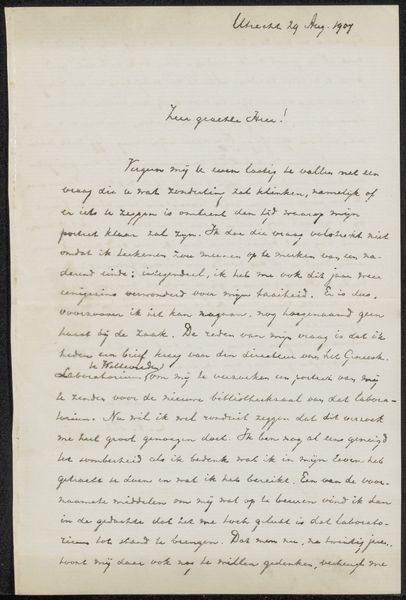 Utrecht 29 Aug. 1907
Zeer geachte Heer!
Vergun mij U even lastig te vallen met een
vraag die U wat zonderling zal klinken, namelijk of
er iets te zeggen is omtrent den tijd waarop mijn
portret klaar zal zijn. Ik doe die vraag volstrekt niet
omdat ik teekenen zou meenen op te merken van een na-
derend einde; integendeel, ik heb me ook dit jaar weer
eenigszins verwonderd over mijn taaiheid. Er is dus,
voorzoover ik het kan nagaan, nog hoegenaamd geen
haast bij de zaak. De reden van mijn vraag is dat ik
heden een brief kreeg van den directeur van het Geneesk.
te Weltevreden
Laboratorium, om mij te verzoeken een portret van mij
te zenden voor de nieuwe bibliotheekzaal van dat labora-
torium. Nu wil ik wel ronduit zeggen dat dit verzoek
me heel groot genoegen doet. Ik ben nog al eens geneigd
tot somberheid als ik bedenk wat ik in mijn leven heb
getracht te doen en wat ik heb bereikt. Een van de voor-
naamste middelen om mij wat op te beuren vind ik dan
in de gedachte dat het me toch gelukt is dat laborato-
rium tot stand te brengen. Dat men nu, na twintig jaar,
toont mij daar ook nog te willen gedenken, verheugt me